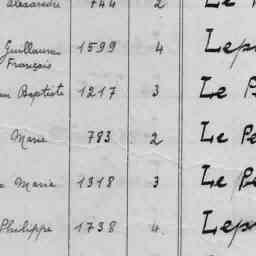 Alexandre 744 2 Le
Guillaume 1599 4 Lep
François
Baptiste 1217 3 Le B
Marie 783 2 Le Pe
Marie 1318 3 Le Be
Philippe 1738 4. Lep